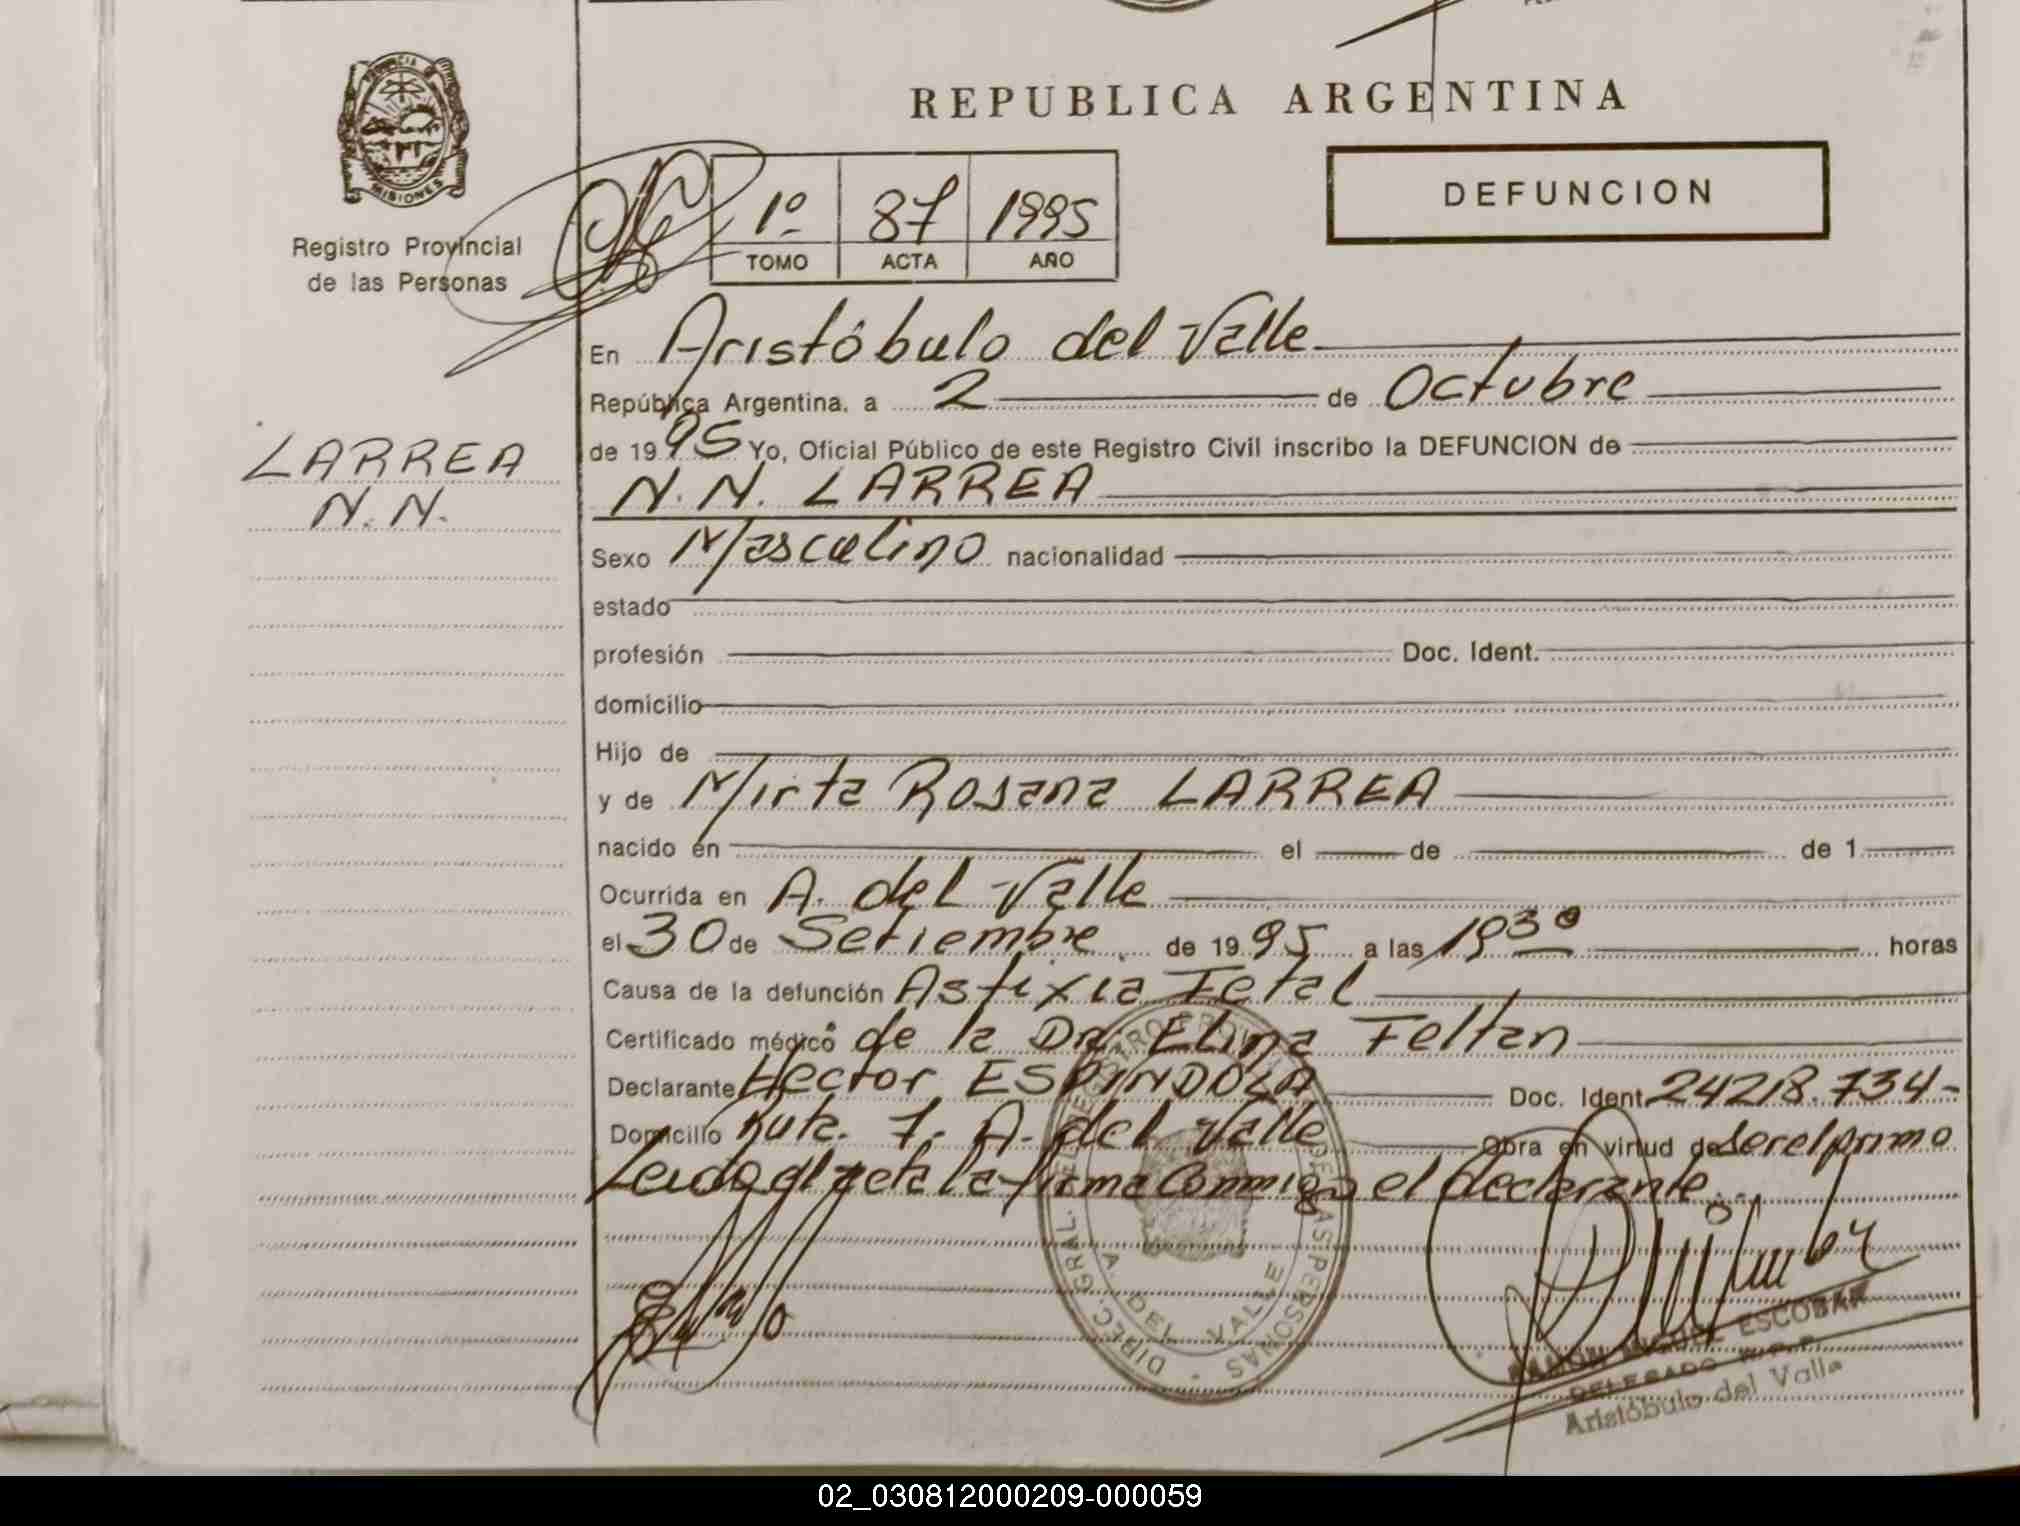 REPUBLICA ARGENTINA
PROVINCIA DE MISIONES
Registro Provincial
de las Personas
1º 87 1995
TOMO ACTA AÑO
DEFUNCION
LARREA
N.N.
En Aristóbulo del Valle
República Argentina, a 2 de Octubre
de 1995 Yo, Oficial Público de este Registro Civil inscribo la DEFUNCION de
N.N. LARREA
Sexo Masculino nacionalidad
estado
profesión Doc. Ident.
domicilio
Hijo de
y de Mirta Rosana LARREA
nacido en el de de 1
Ocurrida en A. del Valle
el 30 de Setiembre de 1995 a las 19³⁰ horas
Causa de la defunción Asfixia Fetal
Certificado médico de la Dra Elina Feltan
Declarante Hector ESPINDOLA Doc. Ident. 24218.734-
Domicilio Ruta 7. A. del Valle Obra en virtud de ser el primo
Leida el acta la firma Conmigo el declarante
DIREC. GRAL. DE REGISTRO PROVINCIAL DE LAS PERSONAS
A. DEL VALLE
RAMON MIGUEL ESCOBAR
DELEGADO R.P.P.
Aristóbulo del Valle
02_030812000209-000059